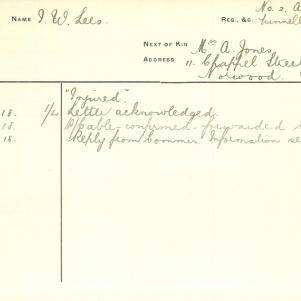 No. 2. A
NAME J. W. Lees. REG., &C. Tunnell
NEXT OF KIN Mrs A. Jones
ADDRESS 11. Chappel Street
Norwood.
"Injured".
15. 1/4 Letter acknowledged.
15. Cable-confirmed-forwarded
15. Reply from Commr. Information se